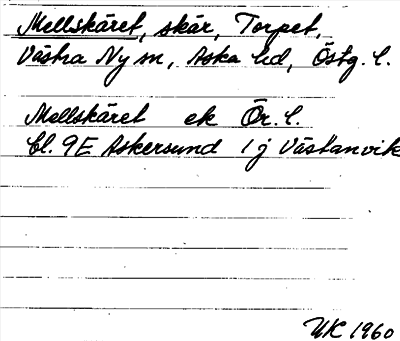 Mellskäret, skär, Torpet,
Västra Ny sn, Aska hd, Östg. l.
Mellskäret ek Ör. l.
bl. 9E Askersund 1 j Västanvik
UK 1960